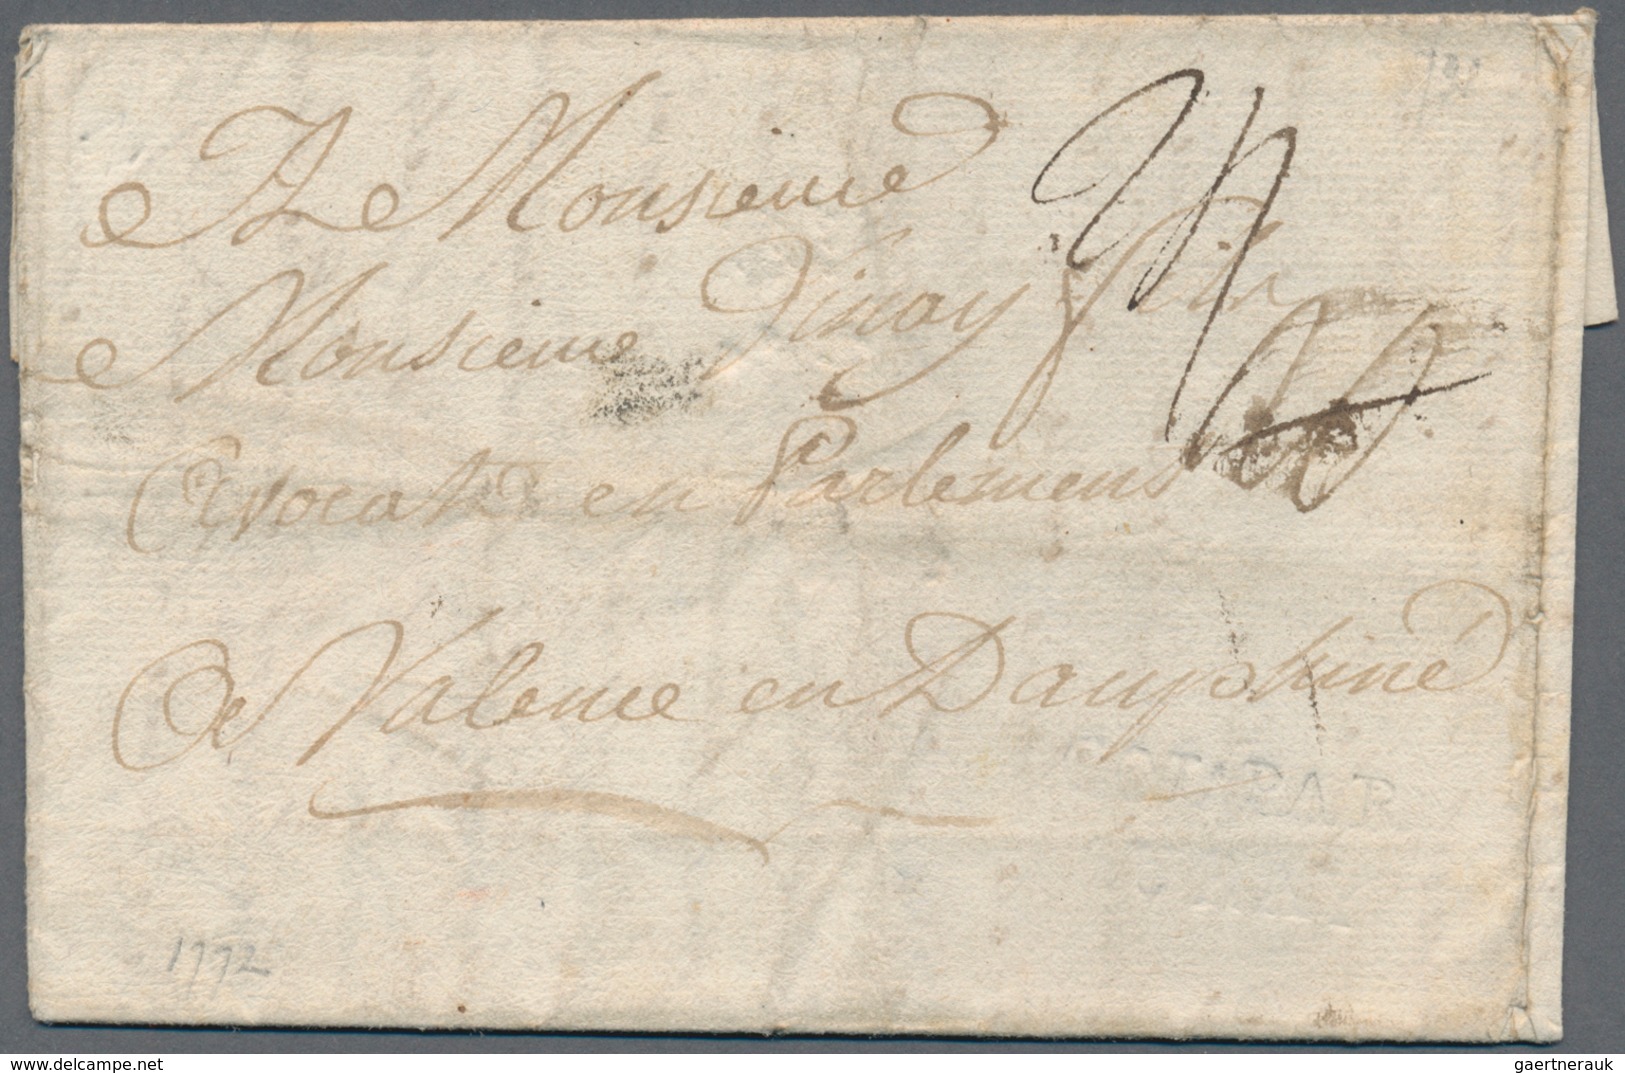 A Monsieur
Monsieur Vinay fils
Avocat en Parlement
A Valence en Dauphiné
1772
delcampe.net
gaertnerauk